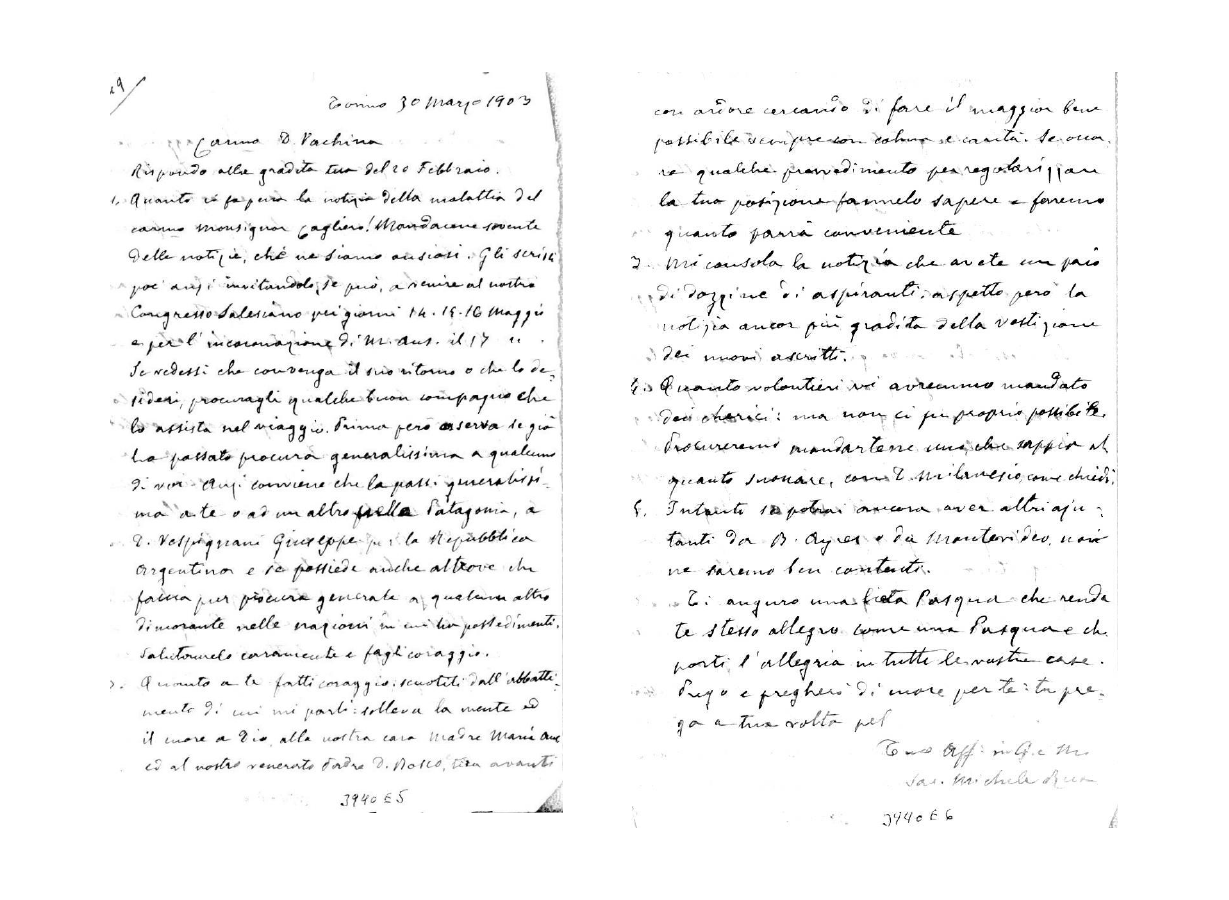 29
Torino 30 Marzo 1903
Carmo D. Vachina
Rispondo alla gradita tua del 20 Febbraio.
1. Quanto ci fa pena la notizia della malattia del
carmo Monsignor Cagliero! Mandacene sovente
delle notizie, chè ne siamo ansiosi. Gli scrissi
poc' anzi invitandolo, se può, a venire al nostro
Congresso Salesiano pei giorni 14-15-16 Maggio
e per l'incoronazione di M. Aus. il 17 "
Se vedessi che convenga il suo ritorno o che lo de-
sideri, procuragli qualche buon compagno che
lo assista nel viaggio. Prima però osserva se già
ha passato procura generalissima a qualcuno
di voi. Anzi conviene che la passi generalissi-
ma a te o ad un altro nella Patagonia, a
D. Vespignani Giuseppe per la Repubblica
Argentina e se possiede anche altrove che
faccia pur procura generale a qualcun altro
dimorante nelle nazioni in cui ha possedimenti.
Salutamelo caramente e fagli coraggio.
2. Quanto a te fatti coraggio: scuotiti dall'abbatti-
mento di cui mi parli: solleva la mente ed
il cuore a Dio, alla nostra cara Madre Maria Aus
ed al nostro venerato Padre D. Bosco, tira avanti
3940 E 5
con ardore cercando di fare il maggior bene
possibile sempre con calma e carità. Se occor-
re qualche provvedimento per regolarizzare
la tua posizione fannelo sapere e faremo
quanto parrà conveniente
3. Mi consola la notizia che avete un paio
di dozzine di aspiranti: aspetto però la
notizia ancor più gradita della vestizione
dei nuovi ascritti.
4. Quanto volontieri vi avremmo mandato
dei chierici: ma non ci fu proprio possibile.
Procureremo mandartene uno che sappia al-
quanto suonare, con D. Milanesio, come chiedi.
5. Intanto se potrai ancora aver altri aju-
tanti da B. Ayres e da Montevideo, noi
ne saremo ben contenti.
Ti auguro una lieta Pasqua che renda
te stesso allegro come una Pasqua e che
porti l'allegria in tutte le vostre case.
Prego e pregherò di cuore per te: tu pre-
ga a tua volta pel
Tuo Aff: in G. e M.
Sac. Michele Rua
3940 E 6